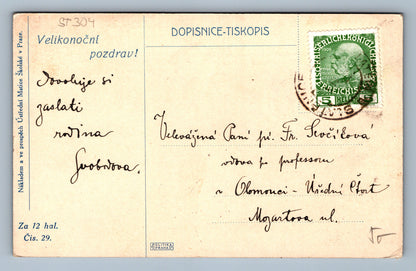 ST304
DOPISNICE-TISKOPIS
Velikonoční
pozdrav!
Dovoluje si
zaslati
rodina
Svobodova.
Nákladem a ve prospěch Ústřední Matice Školské v Praze.
Za 12 hal.
Čís. 29.
KAIS.KÖNIGLICHE
ÖSTERREICHISCHE
5
Velevážená Paní pí. Fr. Ševčíková
vdova po professoru
v Olomouci - Úřední Čtvrť
Mozartova ul.